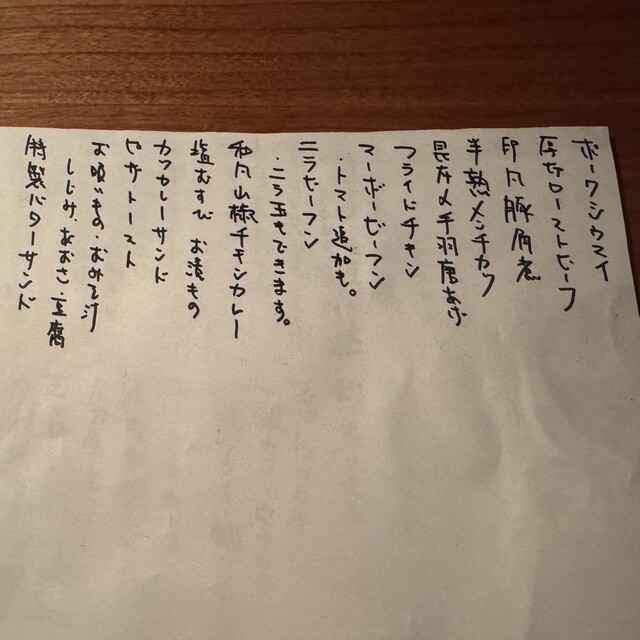 ポークシウマイ
厚切ローストビーフ
印凡豚角煮
半熟メンチカツ
昆布〆手羽唐あげ
フライドチキン
マーボービーフン
・トマト追加も。
ニラビーフン
・ニラ玉もできます。
和凡山椒チキンカレー
塩むすび お漬もの
カツカレーサンド
ピザトースト
お吸いもの おみそ汁
しじみ、あおさ、豆腐
特製バターサンド